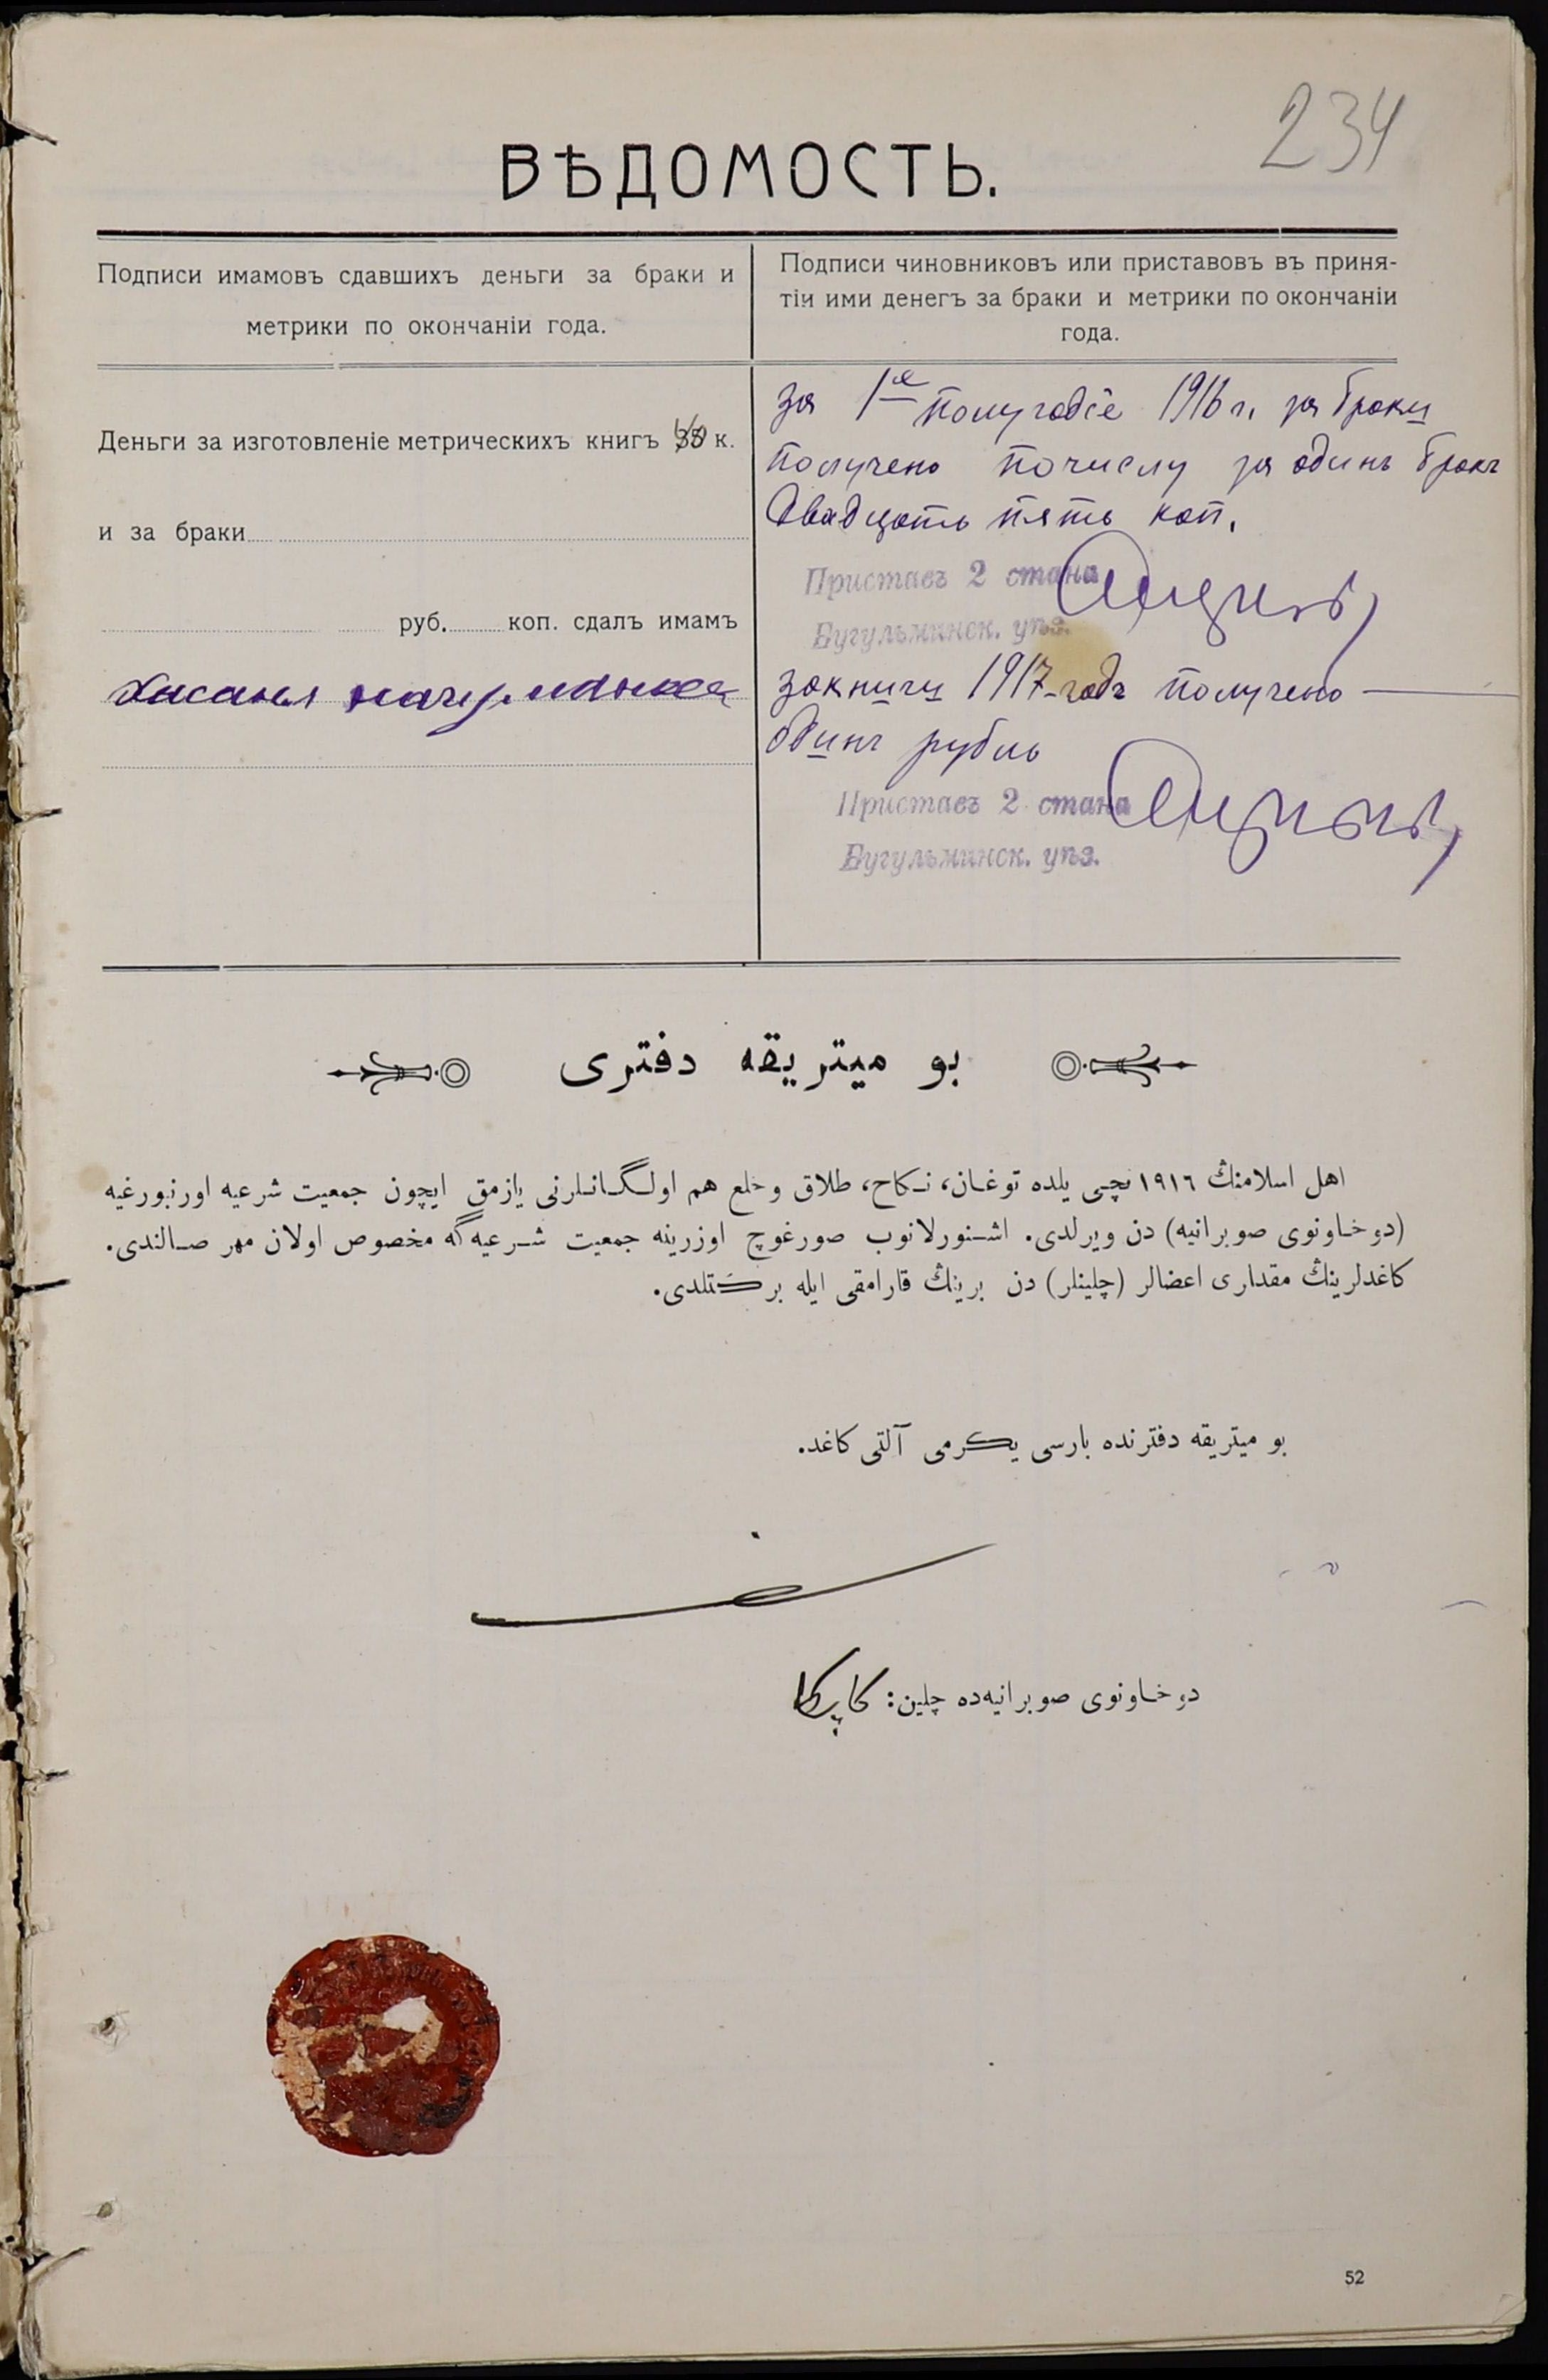 234
ВѢДОМОСТЬ.
Подписи имамовъ сдавшихъ деньги за браки и
метрики по окончаніи года.
Подписи чиновниковъ или приставовъ въ приня-
тіи ими денегъ за браки и метрики по окончаніи
года.
Деньги за изготовленіе метрическихъ книгъ к.
и за браки
руб. коп. сдалъ имамъ
за 1е полугодіе 1916 г. за браки
получено по числу за одинъ бракъ
двадцать пять коп.
Приставъ 2 стана
Бугульминск. уѣз.
за книги 1917 годъ получено
одинъ рубль
Приставъ 2 стана
Бугульминск. уѣз.
بو ميتريقه دفترى
اهل اسلامنڭ ١٩١٦ نچى يلده توغان، نكاح، طلاق و خلع هم اولگانلرنى يازمق ايچون جمعيت شرعيه اورنبورغيه
(دوخاونوى صوبرانيه) دن ويرلدى. اشنورلانوب صورغوچ اوزرينه جمعيت شرعيه گه مخصوص اولان مهر صالندى.
كاغدلرينڭ مقدارى اعضالر (چلينلر) دن برينڭ قارامقى ايله بركتلدى.
بو ميتريقه دفترنده بارسى يكرمى آلتى كاغد.
دوخاونوى صوبرانيه ده چلين:
52